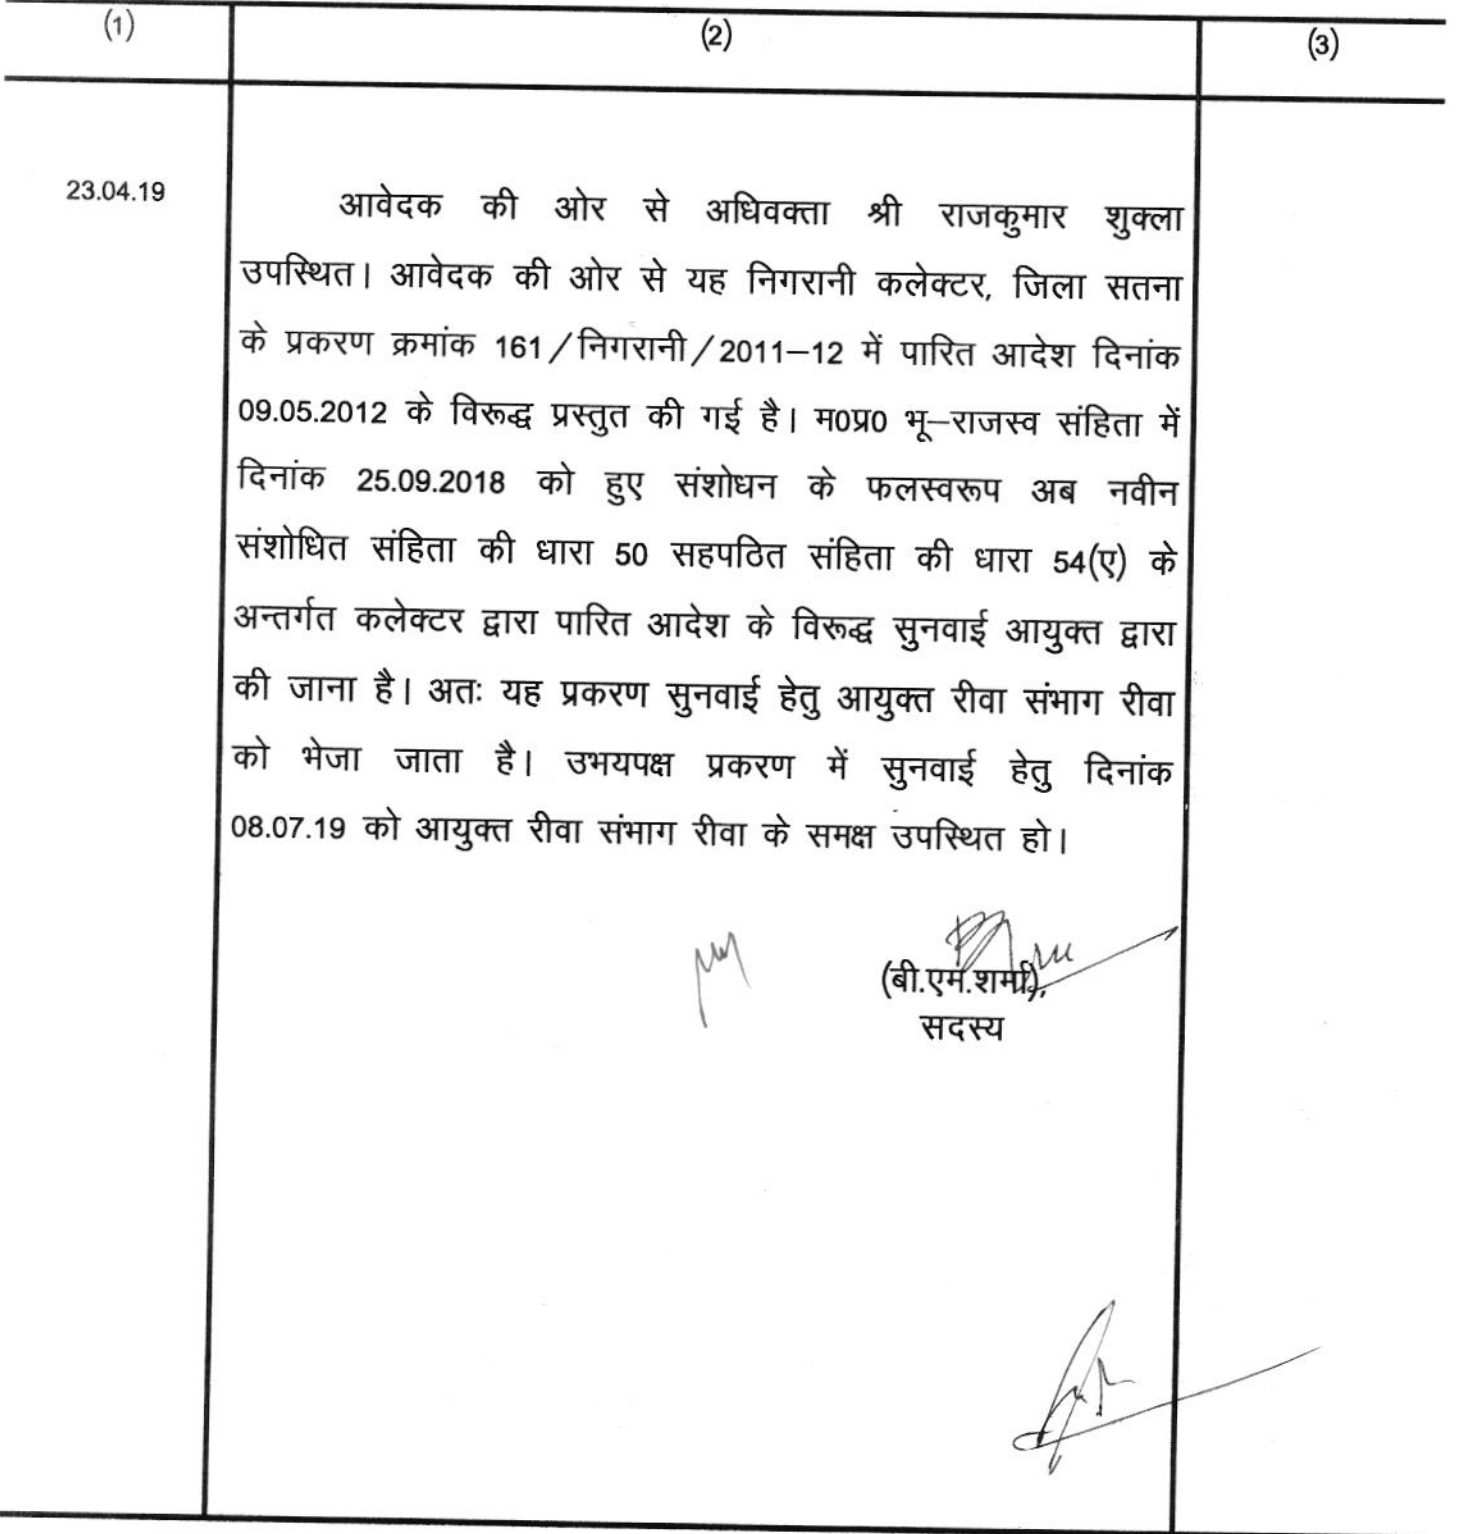 (1) (2) (3)
23.04.19 आवेदक की ओर से अधिवक्ता श्री राजकुमार शुक्ला
उपस्थित। आवेदक की ओर से यह निगरानी कलेक्टर, जिला सतना
के प्रकरण क्रमांक 161/निगरानी/2011–12 में पारित आदेश दिनांक
09.05.2012 के विरूद्ध प्रस्तुत की गई है। म0प्र0 भू–राजस्व संहिता में
दिनांक 25.09.2018 को हुए संशोधन के फलस्वरूप अब नवीन
संशोधित संहिता की धारा 50 सहपठित संहिता की धारा 54(ए) के
अन्तर्गत कलेक्टर द्वारा पारित आदेश के विरूद्ध सुनवाई आयुक्त द्वारा
की जाना है। अतः यह प्रकरण सुनवाई हेतु आयुक्त रीवा संभाग रीवा
को भेजा जाता है। उभयपक्ष प्रकरण में सुनवाई हेतु दिनांक
08.07.19 को आयुक्त रीवा संभाग रीवा के समक्ष उपस्थित हो।
(बी.एम.शर्मा),
सदस्य